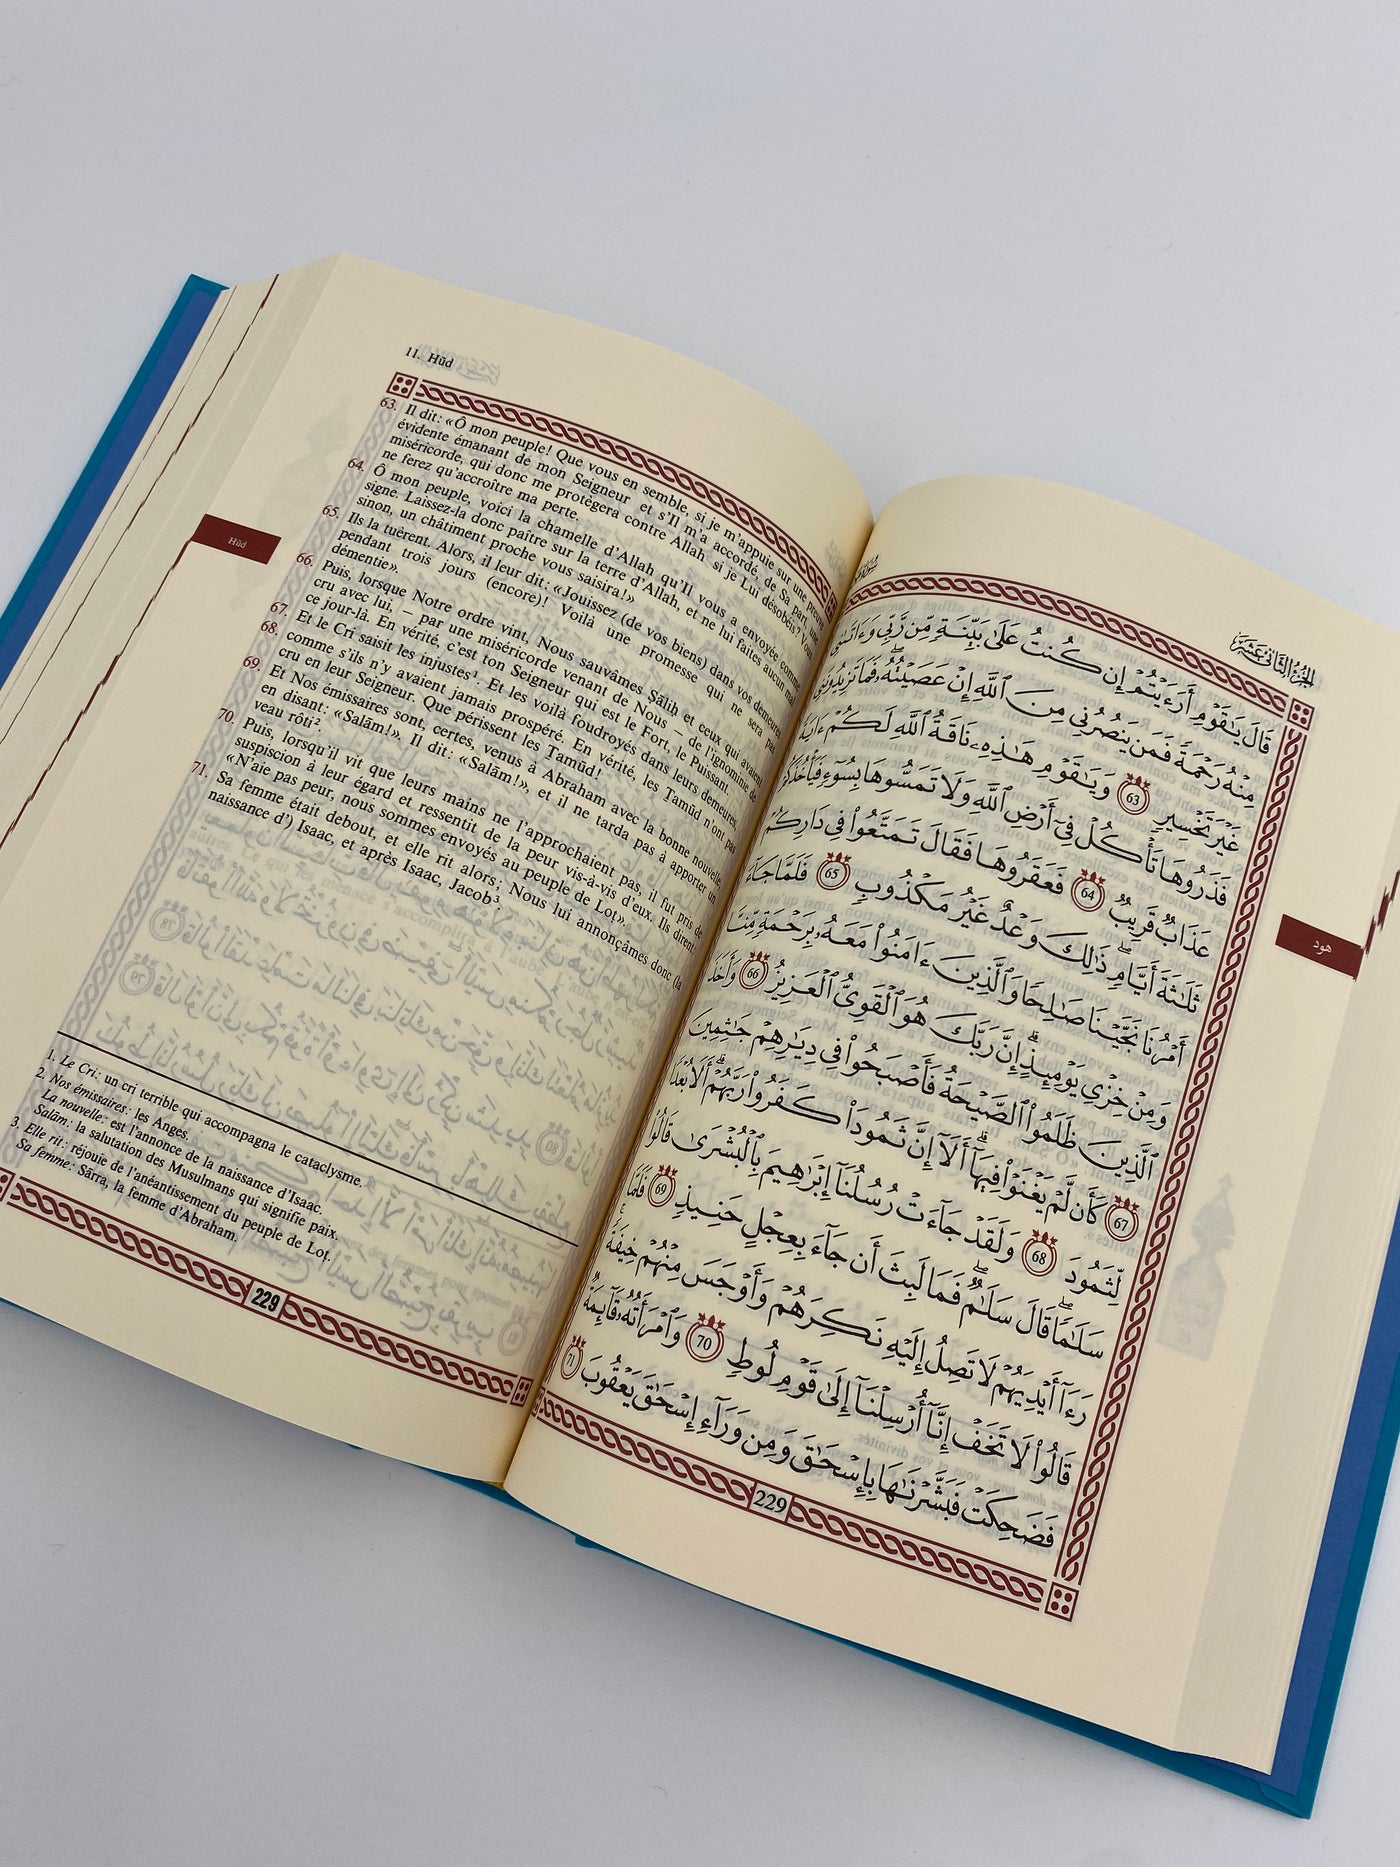 11. Hūd
63. Il dit: «Ô mon peuple! Que vous en semble, si je m'appuie sur une preuve
évidente émanant de mon Seigneur et s'Il m'a accordé, de Sa part, une
miséricorde, qui donc me protègera contre Allah si je Lui désobéis? Vous
ne ferez qu'accroître ma perte.
64. Ô mon peuple, voici la chamelle d'Allah qu'Il vous a envoyée comme
signe. Laissez-la donc paître sur la terre d'Allah, et ne lui faites aucun mal
sinon, un châtiment proche vous saisira!»
65. Ils la tuèrent. Alors, il leur dit: «Jouissez (de vos biens) dans vos demeures
pendant trois jours (encore)! Voilà une promesse qui ne sera pas
démentie».
66. Puis, lorsque Notre ordre vint, Nous sauvâmes Ṣāliḥ et ceux qui avaient
cru avec lui, – par une miséricorde venant de Nous – de l'ignominie de
ce jour-là. En vérité, c'est ton Seigneur qui est le Fort, le Puissant.
67. Et le Cri saisit les injustes¹. Et les voilà foudroyés dans leurs demeures,
68. comme s'ils n'y avaient jamais prospéré. En vérité, les Ṯamūd n'ont pas
cru en leur Seigneur. Que périssent les Ṯamūd!
69. Et Nos émissaires sont, certes, venus à Abraham avec la bonne nouvelle,
en disant: «Salām!». Il dit: «Salām!», et il ne tarda pas à apporter un
veau rôti².
70. Puis, lorsqu'il vit que leurs mains ne l'approchaient pas, il fut pris de
suspicion à leur égard et ressentit de la peur vis-à-vis d'eux. Ils dirent:
«N'aie pas peur, nous sommes envoyés au peuple de Loṭ».
71. Sa femme était debout, et elle rit alors; Nous lui annonçâmes donc (la
naissance d') Isaac, et après Isaac, Jacob³.
1. Le Cri: un cri terrible qui accompagna le cataclysme.
2. Nos émissaires: les Anges.
La nouvelle: est l'annonce de la naissance d'Isaac.
Salām: la salutation des Musulmans qui signifie paix.
3. Elle rit: réjouie de l'anéantissement du peuple de Loṭ.
Sa femme: Sārra, la femme d'Abraham.
229
Hūd
الجزء الثاني عشر
قَالَ يَٰقَوۡمِ أَرَءَيۡتُمۡ إِن كُنتُ عَلَىٰ بَيِّنَةٖ مِّن رَّبِّي وَءَاتَىٰنِي
مِنۡهُ رَحۡمَةٗ فَمَن يَنصُرُنِي مِنَ ٱللَّهِ إِنۡ عَصَيۡتُهُۥۖ فَمَا تَزِيدُونَنِي
غَيۡرَ تَخۡسِيرٖ 63 وَيَٰقَوۡمِ هَٰذِهِۦ نَاقَةُ ٱللَّهِ لَكُمۡ ءَايَةٗ
فَذَرُوهَا تَأۡكُلۡ فِيٓ أَرۡضِ ٱللَّهِ وَلَا تَمَسُّوهَا بِسُوٓءٖ فَيَأۡخُذَكُمۡ
عَذَابٞ قَرِيبٞ 64 فَعَقَرُوهَا فَقَالَ تَمَتَّعُواْ فِي دَارِكُمۡ
ثَلَٰثَةَ أَيَّامٖۖ ذَٰلِكَ وَعۡدٌ غَيۡرُ مَكۡذُوبٖ 65 فَلَمَّا جَآءَ
أَمۡرُنَا نَجَّيۡنَا صَٰلِحٗا وَٱلَّذِينَ ءَامَنُواْ مَعَهُۥ بِرَحۡمَةٖ مِّنَّا
وَمِنۡ خِزۡيِ يَوۡمِئِذٍۚ إِنَّ رَبَّكَ هُوَ ٱلۡقَوِيُّ ٱلۡعَزِيزُ 66 وَأَخَذَ
ٱلَّذِينَ ظَلَمُواْ ٱلصَّيۡحَةُ فَأَصۡبَحُواْ فِي دِيَٰرِهِمۡ جَٰثِمِينَ
67 كَأَن لَّمۡ يَغۡنَوۡاْ فِيهَآۗ أَلَآ إِنَّ ثَمُودَاْ كَفَرُواْ رَبَّهُمۡۗ أَلَا بُعۡدٗا
لِّثَمُودَ 68 وَلَقَدۡ جَآءَتۡ رُسُلُنَآ إِبۡرَٰهِيمَ بِٱلۡبُشۡرَىٰ قَالُواْ
سَلَٰمٗاۖ قَالَ سَلَٰمٞۖ فَمَا لَبِثَ أَن جَآءَ بِعِجۡلٍ حَنِيذٖ 69 فَلَمَّا
رَءَآ أَيۡدِيَهُمۡ لَا تَصِلُ إِلَيۡهِ نَكِرَهُمۡ وَأَوۡجَسَ مِنۡهُمۡ خِيفَةٗۚ
قَالُواْ لَا تَخَفۡ إِنَّآ أُرۡسِلۡنَآ إِلَىٰ قَوۡمِ لُوطٖ 70 وَٱمۡرَأَتُهُۥ قَآئِمَةٞ
فَضَحِكَتۡ فَبَشَّرۡنَٰهَا بِإِسۡحَٰقَ وَمِن وَرَآءِ إِسۡحَٰقَ يَعۡقُوبَ 71
229
هود